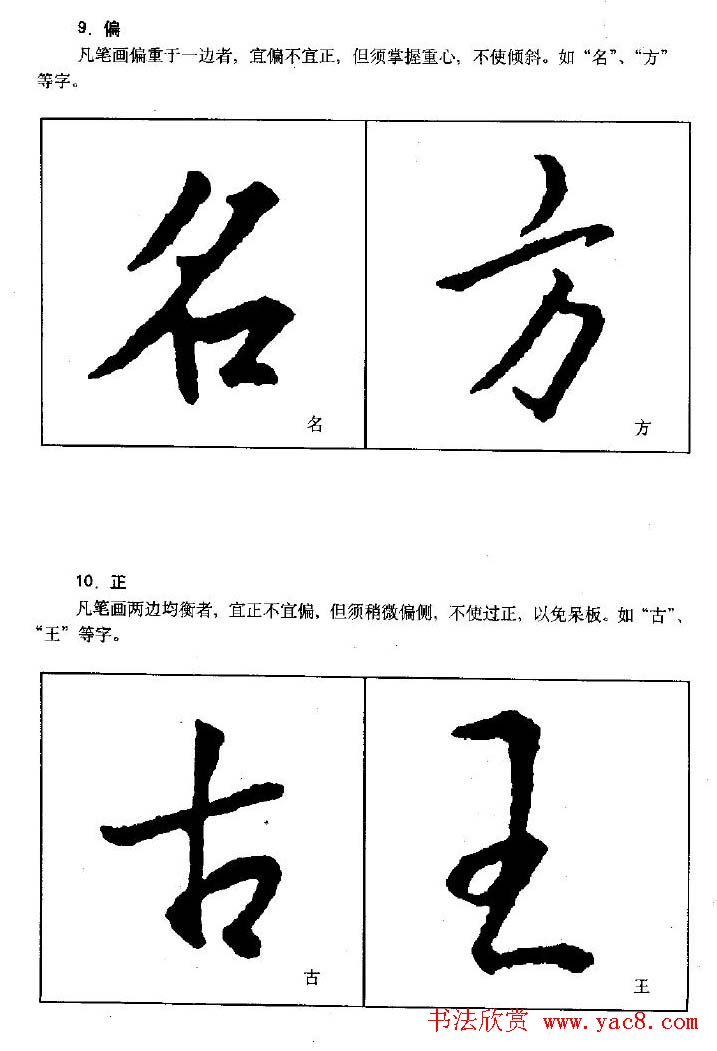 9．偏
凡笔画偏重于一边者，宜偏不宜正，但须掌握重心，不使倾斜。如“名”、“方”
等字。
名 方
名 方
10．正
凡笔画两边均衡者，宜正不宜偏，但须稍微偏侧，不使过正，以免呆板。如“古”、
“王”等字。
古 王
古 王
书法欣赏 www.yac8.com